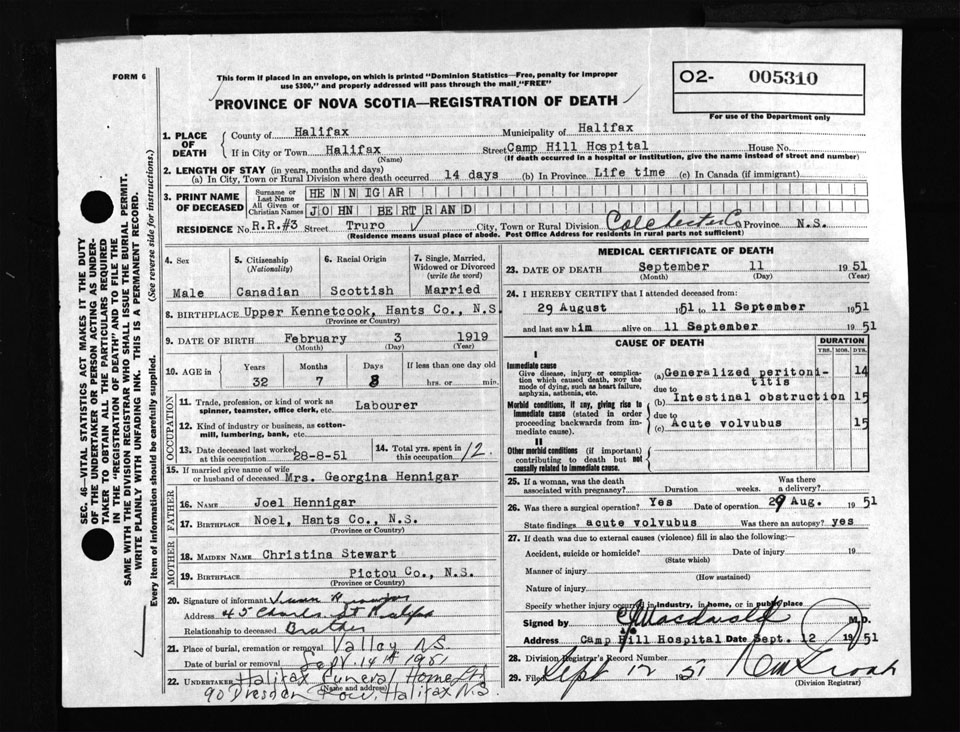 FORM 6
This form if placed in an envelope, on which is printed "Dominion Statistics—Free, penalty for improper
use $300," and properly addressed will pass through the mail "FREE"
PROVINCE OF NOVA SCOTIA—REGISTRATION OF DEATH
O2- 005310
For use of the Department only
1. PLACE OF DEATH
County of Halifax Municipality of Halifax
If in City or Town Halifax Street Camp Hill Hospital House No.
(Name) (If death occurred in a hospital or institution, give the name instead of street and number)
2. LENGTH OF STAY (in years, months and days)
(a) In City, Town or Rural Division where death occurred 14 days (b) In Province Life time (c) In Canada (if immigrant)
3. PRINT NAME OF DECEASED
Surname or Last Name HENNIGAR
All Given or Christian Names JOHN BERTRAND
RESIDENCE No. R.R.#3 Street Truro City, Town or Rural Division Colchester Co Province N.S.
(Residence means usual place of abode. Post Office Address for residents in rural parts not sufficient)
4. Sex
Male
5. Citizenship
(Nationality)
Canadian
6. Racial Origin
Scottish
7. Single, Married,
Widowed or Divorced
(write the word)
Married
8. BIRTHPLACE Upper Kennetcook, Hants Co., N.S.
(Province or Country)
9. DATE OF BIRTH February 3 1919
(Month) (Day) (Year)
10. AGE in Years Months Days If less than one day old
32 7 8 hrs. or min.
OCCUPATION
11. Trade, profession, or kind of work as
spinner, teamster, office clerk, etc. Labourer
12. Kind of industry or business, as cotton-
mill, lumbering, bank, etc.
13. Date deceased last worked
at this occupation 28-8-51
14. Total yrs. spent in
this occupation 12
15. If married give name of wife
or husband of deceased Mrs. Georgina Hennigar
FATHER
16. NAME Joel Hennigar
17. BIRTHPLACE Noel, Hants Co., N.S.
(Province or Country)
MOTHER
18. MAIDEN NAME Christina Stewart
19. BIRTHPLACE Pictou Co., N.S.
(Province or Country)
20. Signature of informant
Address 45 Charles St Halifax
Relationship to deceased Brother
21. Place of burial, cremation or removal Valley N.S.
Date of burial or removal Sept. 14th 1951
22. UNDERTAKER Halifax Funeral Home Ltd
(Name and address)
90 Dresden Row, Halifax N.S.
MEDICAL CERTIFICATE OF DEATH
23. DATE OF DEATH September 11 1951
(Month) (Day) (Year)
24. I HEREBY CERTIFY that I attended deceased from:
29 August 1951 to 11 September 1951
and last saw him alive on 11 September 1951
CAUSE OF DEATH
DURATION
YRS. MOS. DYS.
I
Immediate cause
Give disease, injury or complica-
tion which caused death, NOT the
mode of dying, such as heart failure,
asphyxia, asthenia, etc.
(a) Generalized peritoni-
titis 14
due to
(b) Intestinal obstruction 15
Morbid conditions, if any, giving rise to
immediate cause (stated in order
proceeding backwards from im-
mediate cause).
due to
(c) Acute volvubus 15
II
Other morbid conditions (if important)
contributing to death but not
causally related to immediate cause.
25. If a woman, was the death
associated with pregnancy? Duration weeks. Was there
a delivery?
26. Was there a surgical operation? Yes Date of operation 29 Aug. 1951
State findings acute volvubus Was there an autopsy? yes
27. If death was due to external causes (violence) fill in also the following:—
Accident, suicide or homicide? Date of injury 19
(State which)
Manner of injury
(How sustained)
Nature of injury
Specify whether injury occurred in industry, in home, or in public place
Signed by M.D.
Address Camp Hill Hospital Date Sept. 12 1951
28. Division Registrar's Record Number
29. Filed Sept 12 1951
(Division Registrar)
SEC. 46—VITAL STATISTICS ACT MAKES IT THE DUTY
OF THE UNDERTAKER OR PERSON ACTING AS UNDER-
TAKER TO OBTAIN ALL THE PARTICULARS REQUIRED
IN THE "REGISTRATION OF DEATH" AND TO FILE THE
SAME WITH THE DIVISION REGISTRAR WHO SHALL ISSUE THE BURIAL PERMIT.
WRITE PLAINLY WITH UNFADING INK. THIS IS A PERMANENT RECORD.
Every item of information should be carefully supplied. (See reverse side for instructions.)